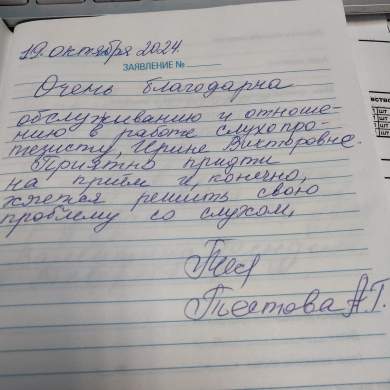 19. октября 2024.
ЗАЯВЛЕНИЕ №
Очень благодарна
обслуживанию и отноше-
нию в работе слухопро-
тезисту, Ирине Викторовне.
Приятно придти
на приём и, конечно,
решить свою
проблему со слухом.
Тестова А.Т.